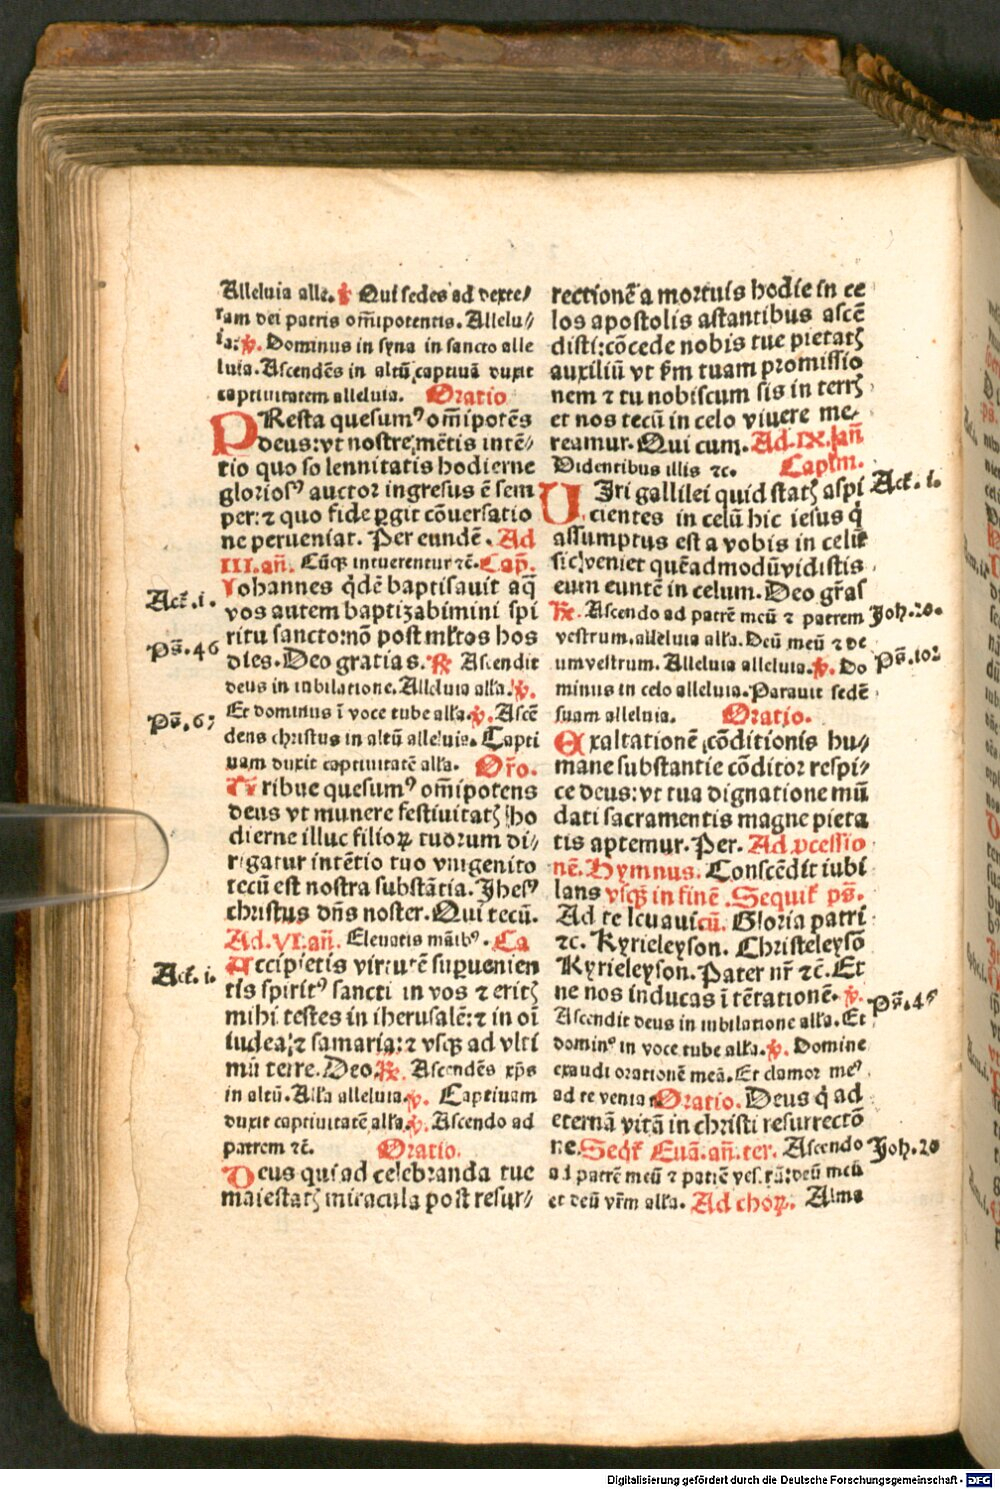 Alleluia alle. ℣ Qui sedes ad dexte//
ram dei patris om̄ipotentis. Allelu//
ia: ℣. Dominus in syna in sancto alle
luia. Ascendēs in altū captiuā duxit
captiuitatem alleluia. Oratio
PResta quesumꝰ om̄ipotēs
deus: vt nostre mētis intē//
tio quo solennitatis hodierne
gloriosꝰ auctor ingresus ē sem
per: ⁊ quo fide ꝑgit cōuersatio
ne perueniat. Per eundē. Ad
III. an̄. Cūqꝫ intuerentur ⁊c̄. Cap̄.
Iohannes q̇dē baptisauit aq̄
vos autem baptizabimini spi
ritu sancto: nō post ml̄tos hos
dies. Deo gratias. ℟ Ascendit
deus in iubilatione. Alleluia alľa. ℣.
Et dominus ī voce tube alľa. ℣. Ascē
dens christus in altū alleluia. Capti
uam duxit captiuitatē alľa. Or̄o.
Tribue quesumꝰ om̄ipotens
deus vt munere festiuitatꝫ ho
dierne illuc filioꝝ tuorum di//
rigatur intētio quo vnigenito
tecū est nostra substātia. Jhesꝰ
christus dn̄s noster. Qui tecū.
Ad. VI. an̄. Eleuatis māibꝰ. Ca
Accipietis virtutē supuenien
tis spiritꝰ sancti in vos ⁊ eritꝫ
mihi testes in iherusalē: ⁊ in oī
iudea, ⁊ samaria: ⁊ vsqꝫ ad vlti
mū terre. Deo. ℟. Ascendēs xp̄s
in altū. Alľa alleluia. ℣. Captiuam
duxit captiuitatē alľa. ℣. Ascendo ad
patrem ⁊c̄. Oratio.
Deus qui ad celebranda tue
maiestatꝫ miracula post resur//
rectionē a mortuis hodie in ce
los apostolis astantibus ascē
disti: cōcede nobis tue pietatꝫ
auxiliū vt ẜm tuam promissio
nem ⁊ tu nobiscum sis in terrꝫ
et nos tecū in celo viuere me//
reamur. Qui cum. Ad. IX. an̄
Videntibus illis ⁊c. Capľm.
UIri gallilei quid statꝫ aspi
cientes in celū hic iesus q̇
assumptus est a vobis in celū
sic veniet quēadmodū vidistis
eum euntē in celum. Deo gr̄as
℟. Ascendo ad patrē meū ⁊ patrem
vestrum. alleluia alľa. Deū meū ⁊ de
um vestrum. Alleluia alleluia. ℣. Do
minus in celo alleluia. Parauit sedē
suam alleluia. Oratio.
Exaltationē cōditionis hu//
mane substantie cōditor respi//
ce deus: vt tua dignatione mū
dati sacramentis magne pieta
tis aptemur. Per. Ad ꝓcessio
nē. Hymnus. Conscēdit iubi
lans vsqꝫ in finē. Sequiť ps̄.
Ad te leuaui cū. Gloria patri
⁊c. Kyrieleyson. Christeleysō
Kyrieleyson. Pater nr̄ ⁊c̄. Et
ne nos inducas ī tētationē. ℣.
Ascendit deus in iubilatione alľa. Et
dominꝰ in voce tube alľa. ℣. Domine
exaudi orationē meā. Et clamor meꝰ
ad te venia Oratio. Deus q̇ ad
eternā vitā in christi resurrectō
ne. Seqť Euā. an̄. ter. Ascendo
ad patrē meū ⁊ patrē vestrū: deū meū
et deū vr̄m alľa. Ad choꝝ. Alma
Act. i.
Ps̄. 46
Ps̄. 67
Act. i.
Act. i.
Joh. 20.
Ps̄. 102
Ps̄. 46
Joh. 20
Digitalisierung gefördert durch die Deutsche Forschungsgemeinschaft - DFG